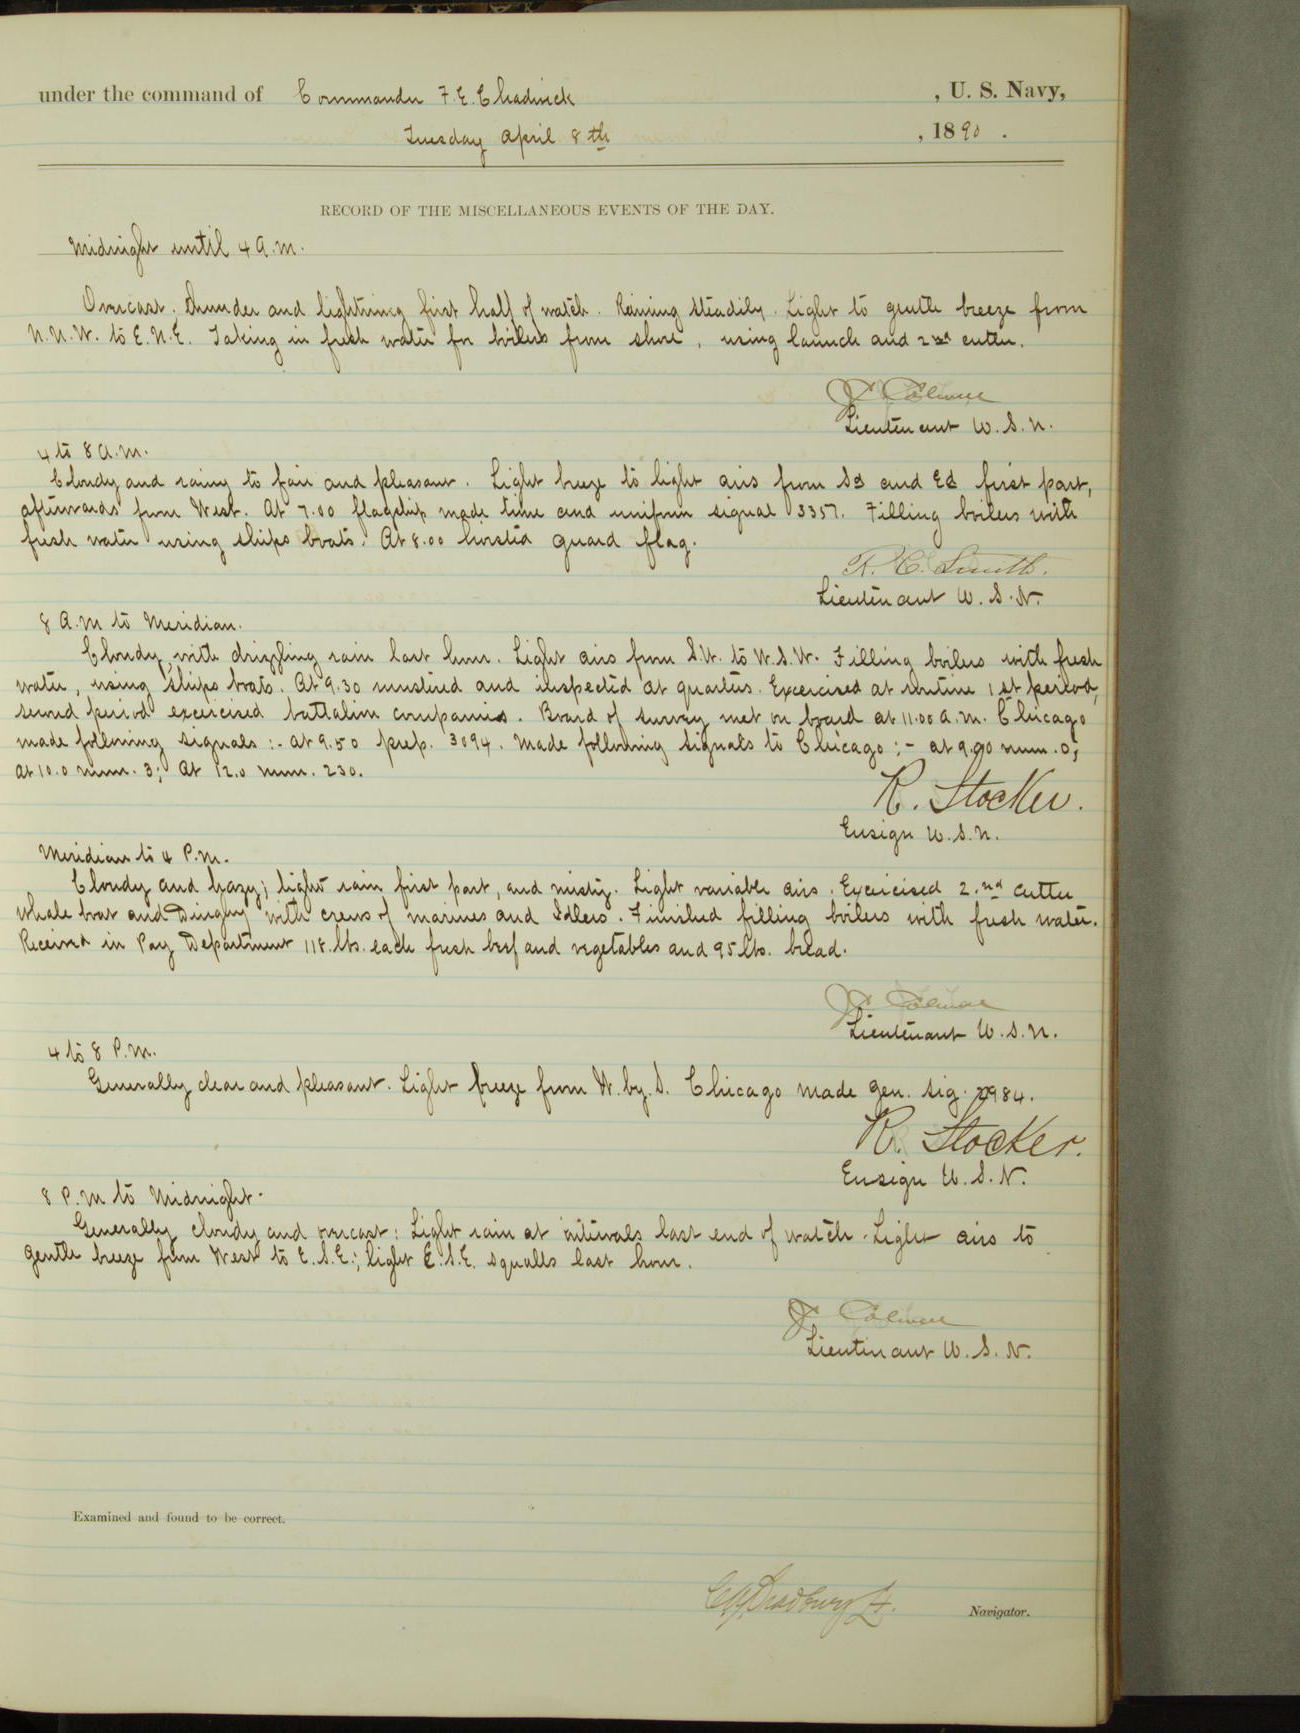 under the command of Commander F. E. Chadwick , U. S. Navy,
Tuesday April 8th , 1890 .
RECORD OF THE MISCELLANEOUS EVENTS OF THE DAY.
Midnight until 4 A.M.
Overcast. thunder and lightning first half of watch. Raining steadily. Light to gentle breeze from
N.N.W. to E.N.E. Taking in fresh water for boilers from shore, using launch and 2nd cutter.
Lieutenant U.S.N.
4 to 8 A.M.
Cloudy and rainy to fair and pleasant. Light breeze to light airs from Sd and Ed first part,
afterwards from West. At 7.00 flagship made time and uniform signal 3357. Filling boilers with
fresh water using ships boats. At 8.00 hoisted guard flag.
R. C. Smith.
Lieutenant U.S.N.
8 A.M to Meridian.
Cloudy, with drizzling rain last hour. Light airs from S.W. to W.S.W. Filling boilers with fresh
water, using ships boats. At 9.30 mustered and inspected at quarters. Excercised at routine 1st period,
second period excercised battalion companies. Board of survey met on board at 11.00 A.M. Chicago
made following signals :- At 9.50 prep. 3094. Made following signals to Chicago :- at num. 0;
At 10.0 num. 3; At 12.0 num. 230.
R. Stocker.
Ensign U.S.N.
Meridian to 4 P.M.
Cloudy and hazy; light rain first part, and misty. Light variable airs. Excercised 2.nd cutter
whale boat and Dinghy with crews of marines and Idlers. Finished filling boilers with fresh water.
Received in Pay Department 118 lbs. each fresh beef and vegetables and 95 lbs. bread.
Lieutenant U.S.N.
4 to 8 P.M.
Generally clear and pleasant. Light breeze from W. by. S. Chicago made gen. sig. 2984.
R. Stocker.
Ensign U.S.N.
8 P.M to Midnight.
Generally cloudy and overcast: Light rain at intervals last end of watch. Light airs to
gentle breeze from West to E.S.E.; light E.S.E. squalls last hour.
Lieutenant U.S.N.
Examined and found to be correct.
Bradbury Lt. Navigator.